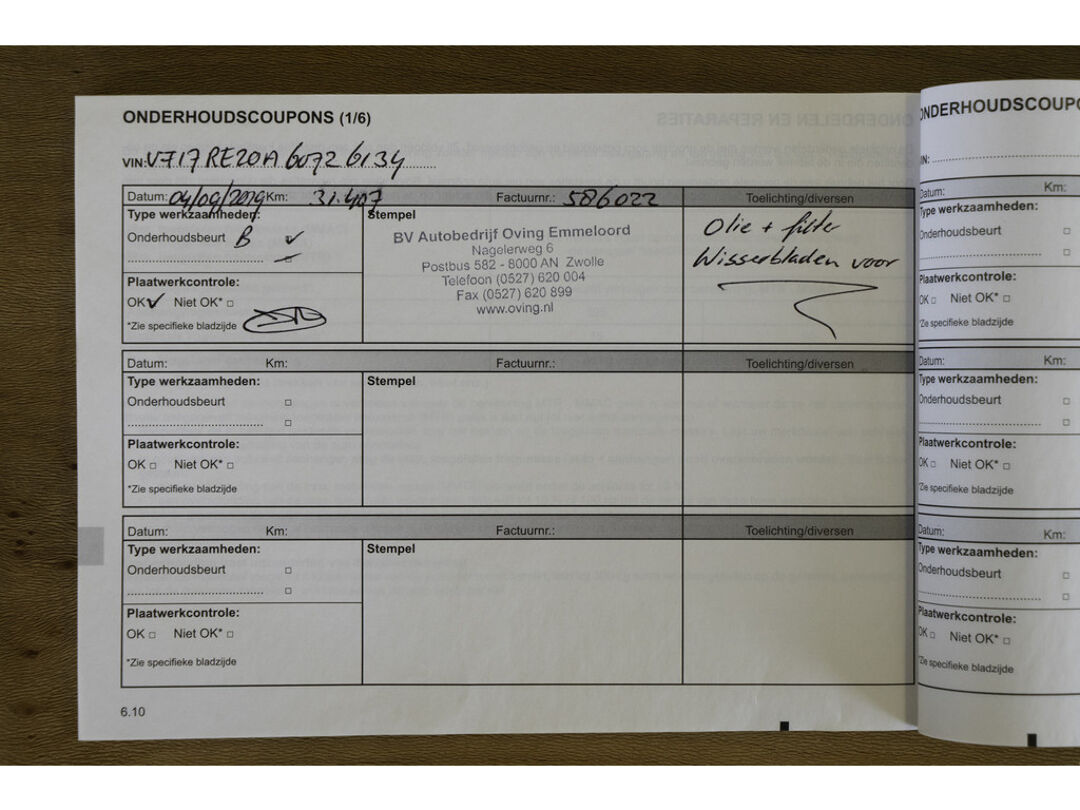 ONDERHOUDSCOUPONS (1/6)
VIN: VF17RE20A60726134
Datum: 04/09/2019 Km: 31.407 Factuurnr.: 586022 Toelichting/diversen
Type werkzaamheden:
Onderhoudsbeurt B ✓
Plaatwerkcontrole:
OK ✓ Niet OK* □
*Zie specifieke bladzijde
Stempel
BV Autobedrijf Oving Emmeloord
Nagelerweg 6
Postbus 582 - 8000 AN Zwolle
Telefoon (0527) 620 004
Fax (0527) 620 899
www.oving.nl
Olie + filter
Wisserbladen voor
Datum: Km: Factuurnr.: Toelichting/diversen
Type werkzaamheden:
Onderhoudsbeurt □
□
Plaatwerkcontrole:
OK □ Niet OK* □
*Zie specifieke bladzijde
Stempel
Datum: Km: Factuurnr.: Toelichting/diversen
Type werkzaamheden:
Onderhoudsbeurt □
□
Plaatwerkcontrole:
OK □ Niet OK* □
*Zie specifieke bladzijde
Stempel
6.10
ONDERHOUDSCOUPO
IN:
Datum: Km:
Type werkzaamheden:
Onderhoudsbeurt □
□
Plaatwerkcontrole:
OK □ Niet OK* □
*Zie specifieke bladzijde
Datum: Km:
Type werkzaamheden:
Onderhoudsbeurt □
□
Plaatwerkcontrole:
OK □ Niet OK* □
*Zie specifieke bladzijde
Datum: Km:
Type werkzaamheden:
Onderhoudsbeurt □
□
Plaatwerkcontrole:
OK □ Niet OK* □
*Zie specifieke bladzijde